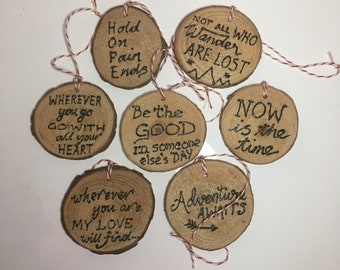 Hold
On
Pain
Ends
NOT ALL WHO
Wander
ARE LOST
WHEREVER
you go
GO WITH
all your
HEART
Be the
GOOD
in someone
else's DAY
NOW
is the
time
wherever
you are
MY LOVE
will find...
Adventure
AWAITS